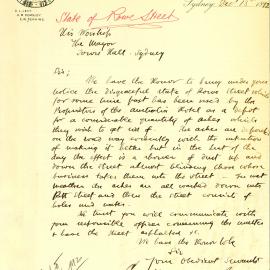 Sydney, Dec. 15 1892
State of Rowe Street
His Worship
The Mayor
Town Hall - Sydney
Sir;
We have the Honor to bring under your
notice the disgraceful state of Rowe Street which
for some time past has been used by the
Proprietors of the Australia Hotel as a Depot
for a considerable quantity of ashes which
they wish to get rid of. The ashes are deposited
on the road way evidently with the intention
of making it better but in the heat of the
day the effect is a shower of dust up and
down the street almost blinding those whose
business takes them into the street. In wet
weather the ashes are all washed down into
Pitt Street and then the street consists of
holes and water.
We trust you will communicate with
your responsible officer concerning this matter
& have the street
We have the Honor to be
Sir
Your Obedient Servants